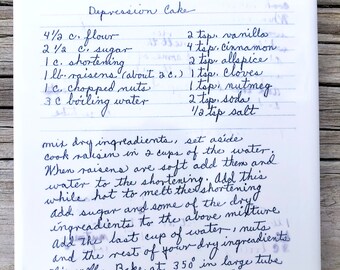 Depression Cake
4 1/2 c. flour 2 tsp. vanilla
2 1/2 c. sugar 4 tsp. cinnamon
1 c. shortening 2 tsp. allspice
1 lb. raisens (about 2 c.) 1 tsp. cloves
1 c. chopped nuts 1 tsp. nutmeg
3 C boiling water 2 tsp. soda
1/2 tsp salt
mix dry ingredients, set aside
cook raisen in 2 cups of the water.
When raisens are soft add them and
water to the shortening. Add this
while hot to melt the shortening
add sugar and some of the dry
ingredients to the above mixture
Add the last cup of water, nuts
and the rest of your dry ingredients
Bake at 350° in large tube